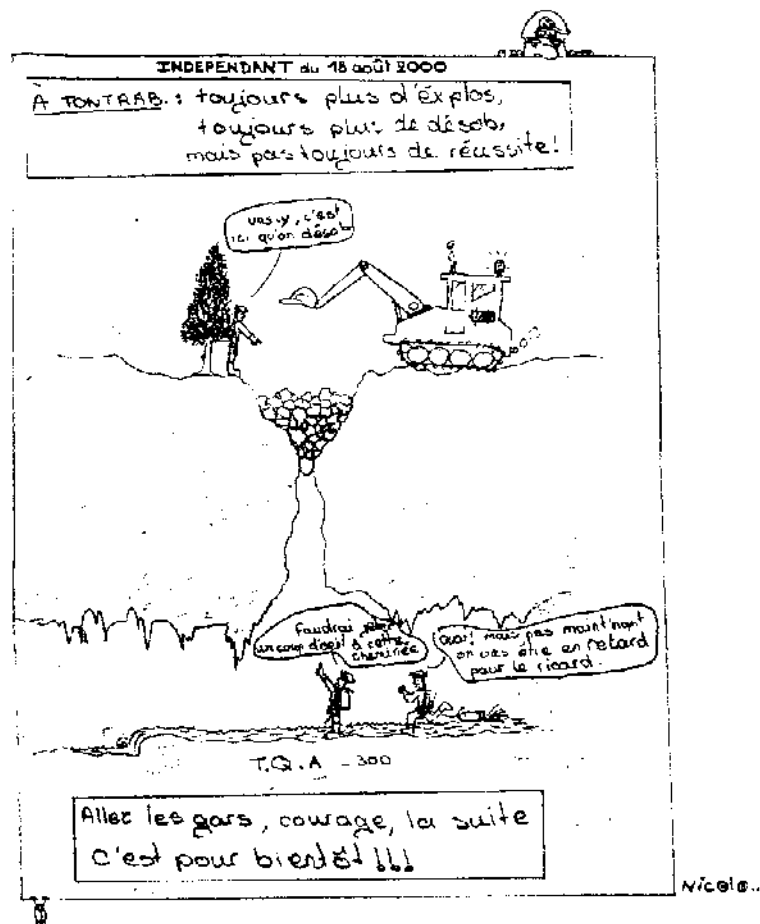 INDEPENDANT du 18 août 2000
À TONTRAB. : toujours plus d'éxplos,
toujours plus de désob,
mais pas toujours de réussite!
vas-y, c'est
ici qu'on désob
faudrai
un coup d'oeil à cette
cheminée
ouai! mais pas maint'nant
on vas être en retard
pour le ricard.
T.Q.A -300
Allez les gars, courage, la suite
C'est pour bientôt !!!
Nicolo..